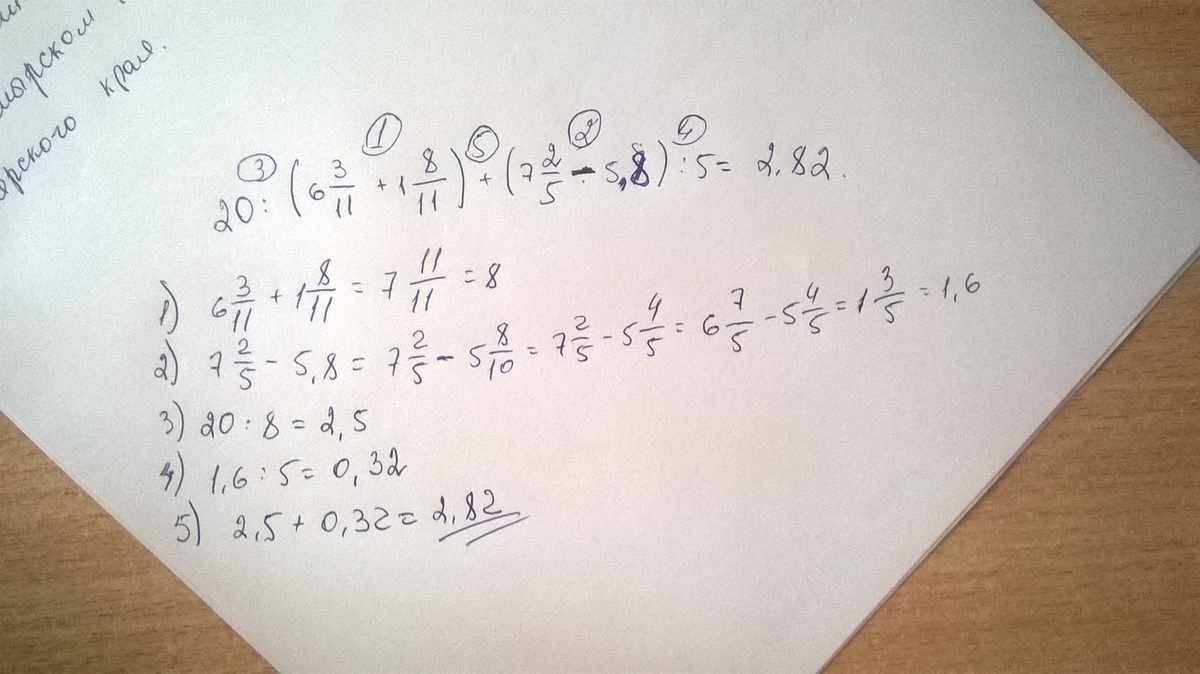 края.
③ ① ⑤ ② ④
20 : (6 3/11 + 1 8/11) + (7 2/5 - 5,8) : 5 = 2,82.
1) 6 3/11 + 1 8/11 = 7 11/11 = 8
2) 7 2/5 - 5,8 = 7 2/5 - 5 8/10 = 7 2/5 - 5 4/5 = 6 7/5 - 5 4/5 = 1 3/5 = 1,6
3) 20 : 8 = 2,5
4) 1,6 : 5 = 0,32
5) 2,5 + 0,32 = 2,82